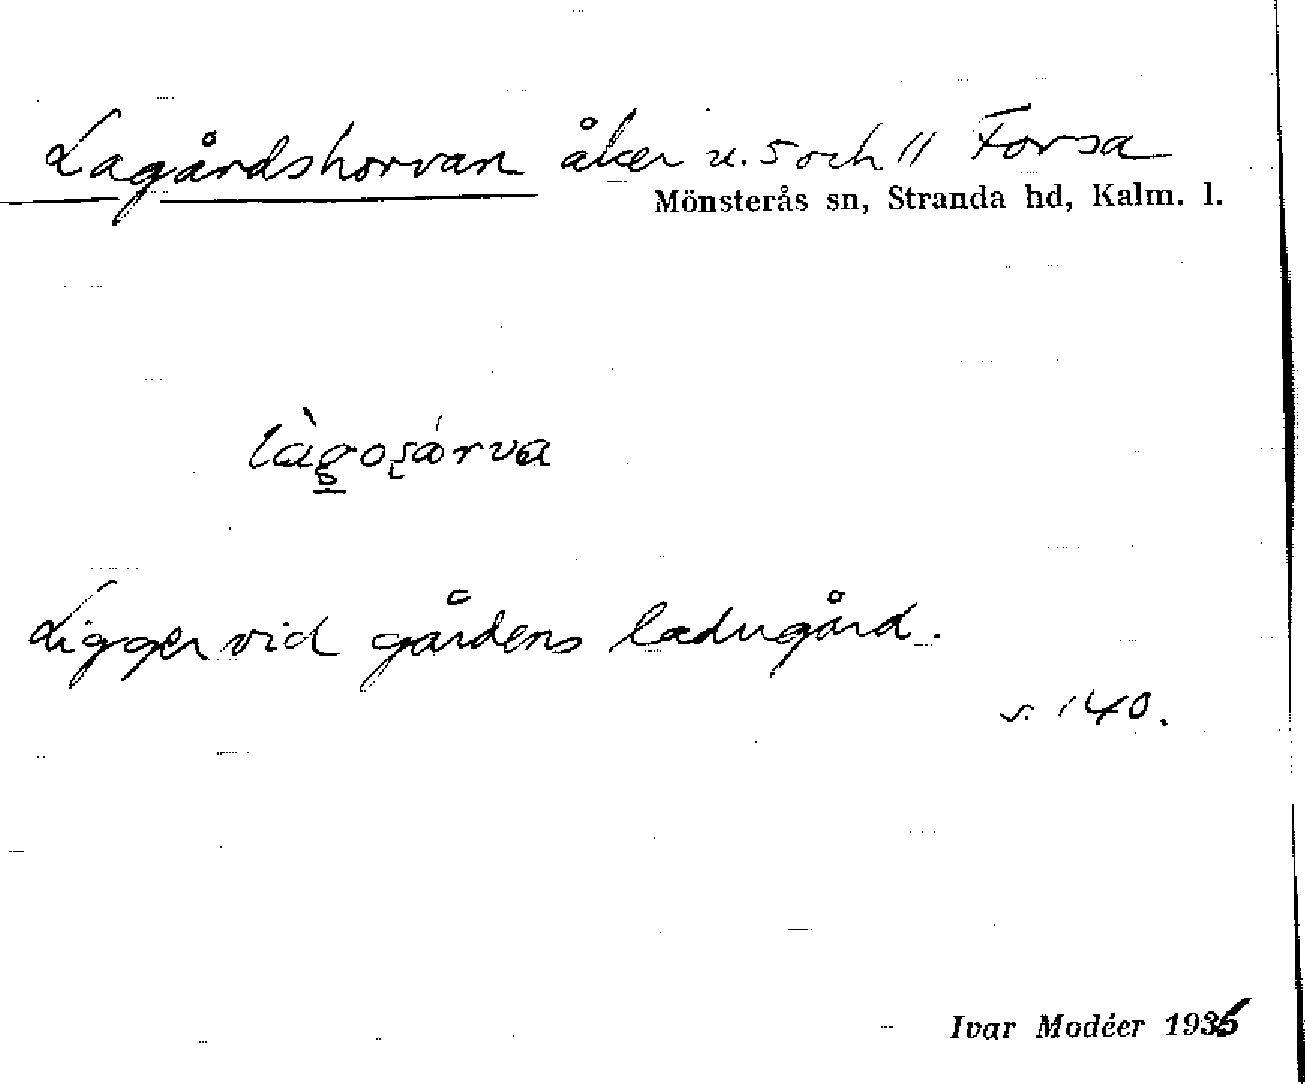 Lagårdshorvan åker u. 5 och 11 Forsa
Mönsterås sn, Stranda hd, Kalm. l.
Ligger vid gårdens ladugård.
s. 140.
Ivar Modéer 1936